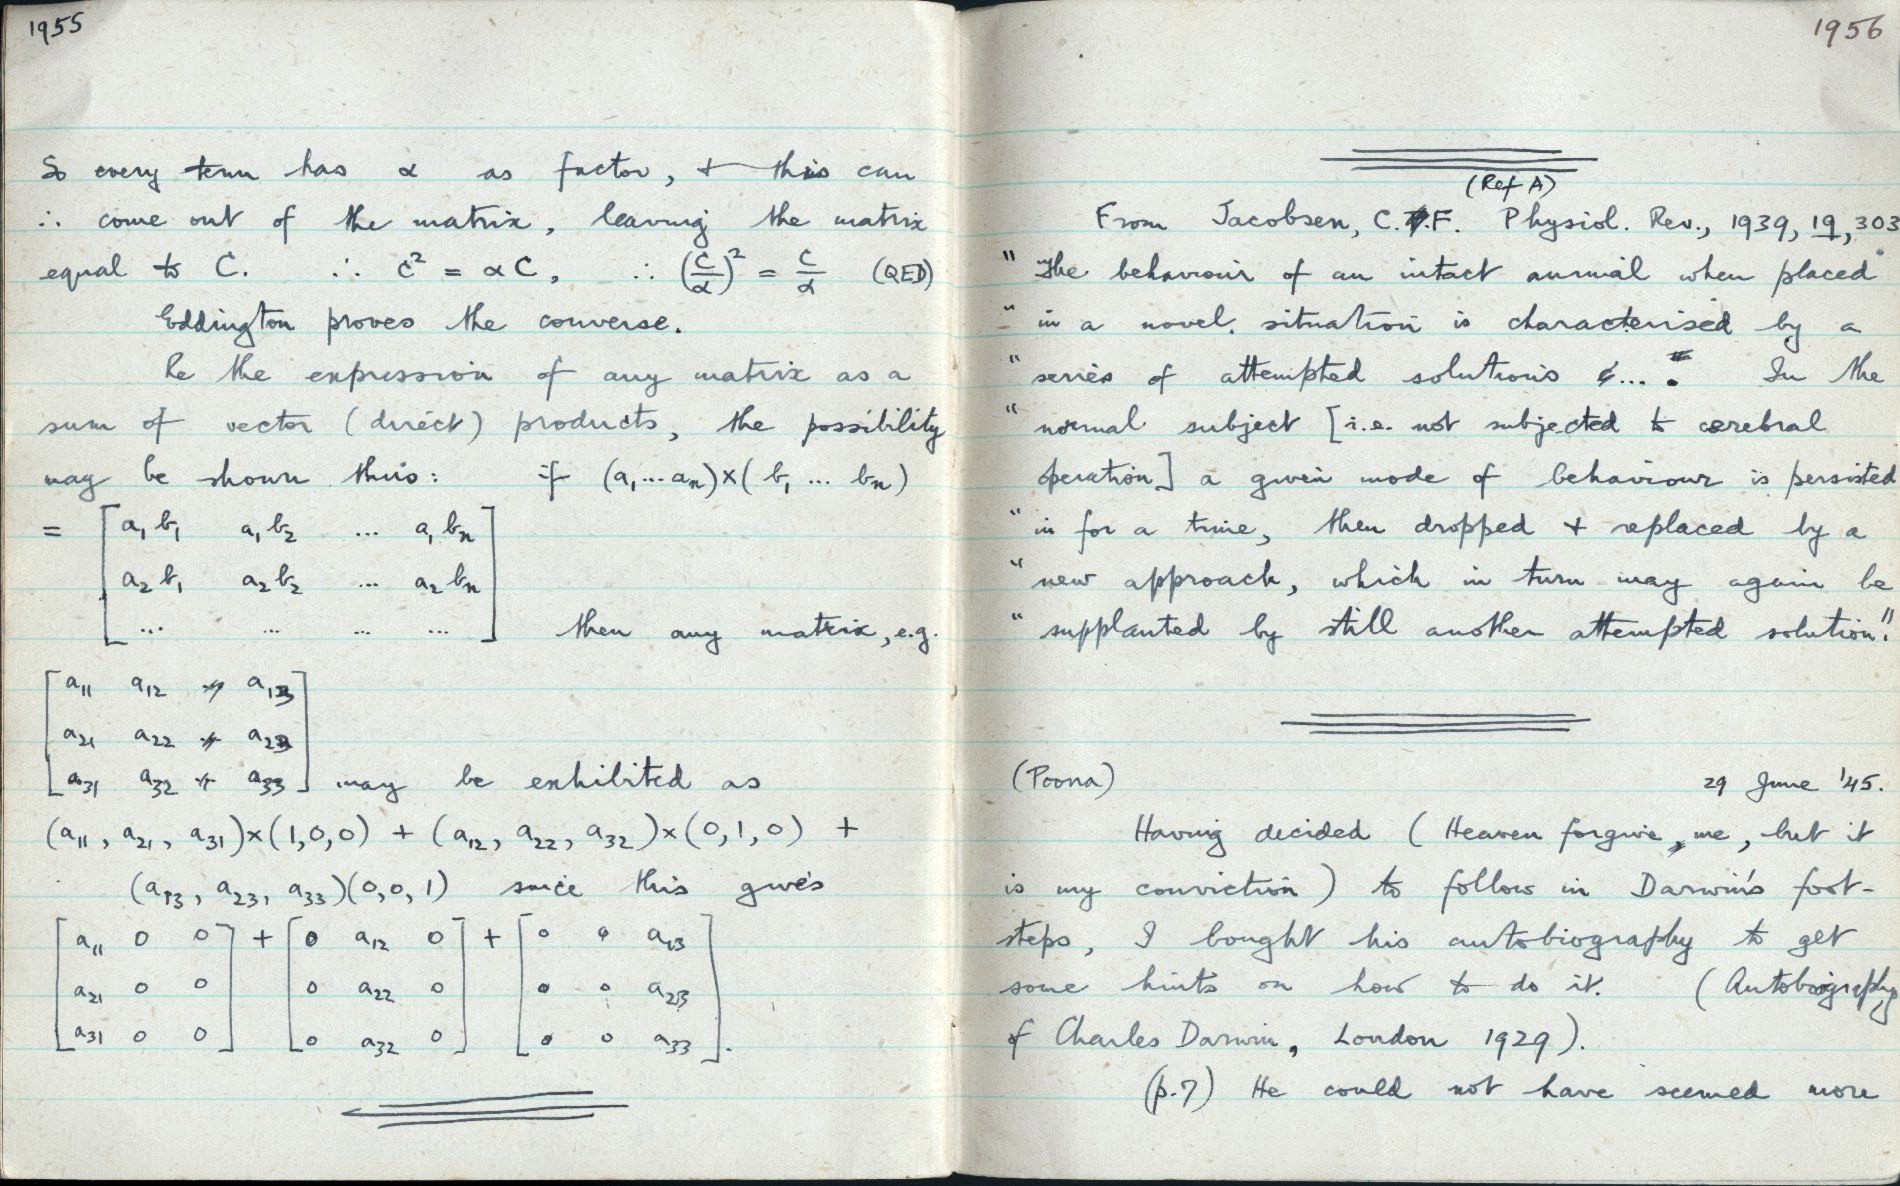 1955
So every term has α as factor, + this can
∴ come out of the matrix, leaving the matrix
equal to C. ∴ C² = αC, ∴ (C/α)² = C/α (QED)
Eddington proves the converse.
Re the expression of any matrix as a
sum of vector (direct) products, the possibility
may be shown thus: if (a₁...aₙ)×(b₁ ... bₙ)
= [a₁b₁ a₁b₂ ... a₁bₙ
a₂b₁ a₂b₂ ... a₂bₙ
... ... ... ...] then any matrix, e.g.
[a₁₁ a₁₂ a₁₃
a₂₁ a₂₂ a₂₃
a₃₁ a₃₂ a₃₃] may be exhibited as
(a₁₁, a₂₁, a₃₁)×(1,0,0) + (a₁₂, a₂₂, a₃₂)×(0,1,0) +
(a₁₃, a₂₃, a₃₃)(0,0,1) since this gives
[a₁₁ 0 0] + [0 a₁₂ 0] + [0 0 a₁₃]
[a₂₁ 0 0] [0 a₂₂ 0] [0 0 a₂₃]
[a₃₁ 0 0] [0 a₃₂ 0] [0 0 a₃₃].
1956
(Ref A)
From Jacobsen, C.F. Physiol. Rev., 1939, 19, 303
" "The behaviour of an intact animal when placed
" in a novel situation is characterised by a
" series of attempted solutions .... In the
" normal subject [i.e. not subjected to cerebral
operation] a given mode of behaviour is persisted
" in for a time, then dropped + replaced by a
" new approach, which in turn may again be
" supplanted by still another attempted solution."
(Poona) 29 June '45.
Having decided (Heaven forgive me, but it
is my conviction) to follow in Darwin's foot-
steps, I bought his autobiography to get
some hints on how to do it. (Autobiography
of Charles Darwin, London 1929).
(p.7) He could not have seemed more